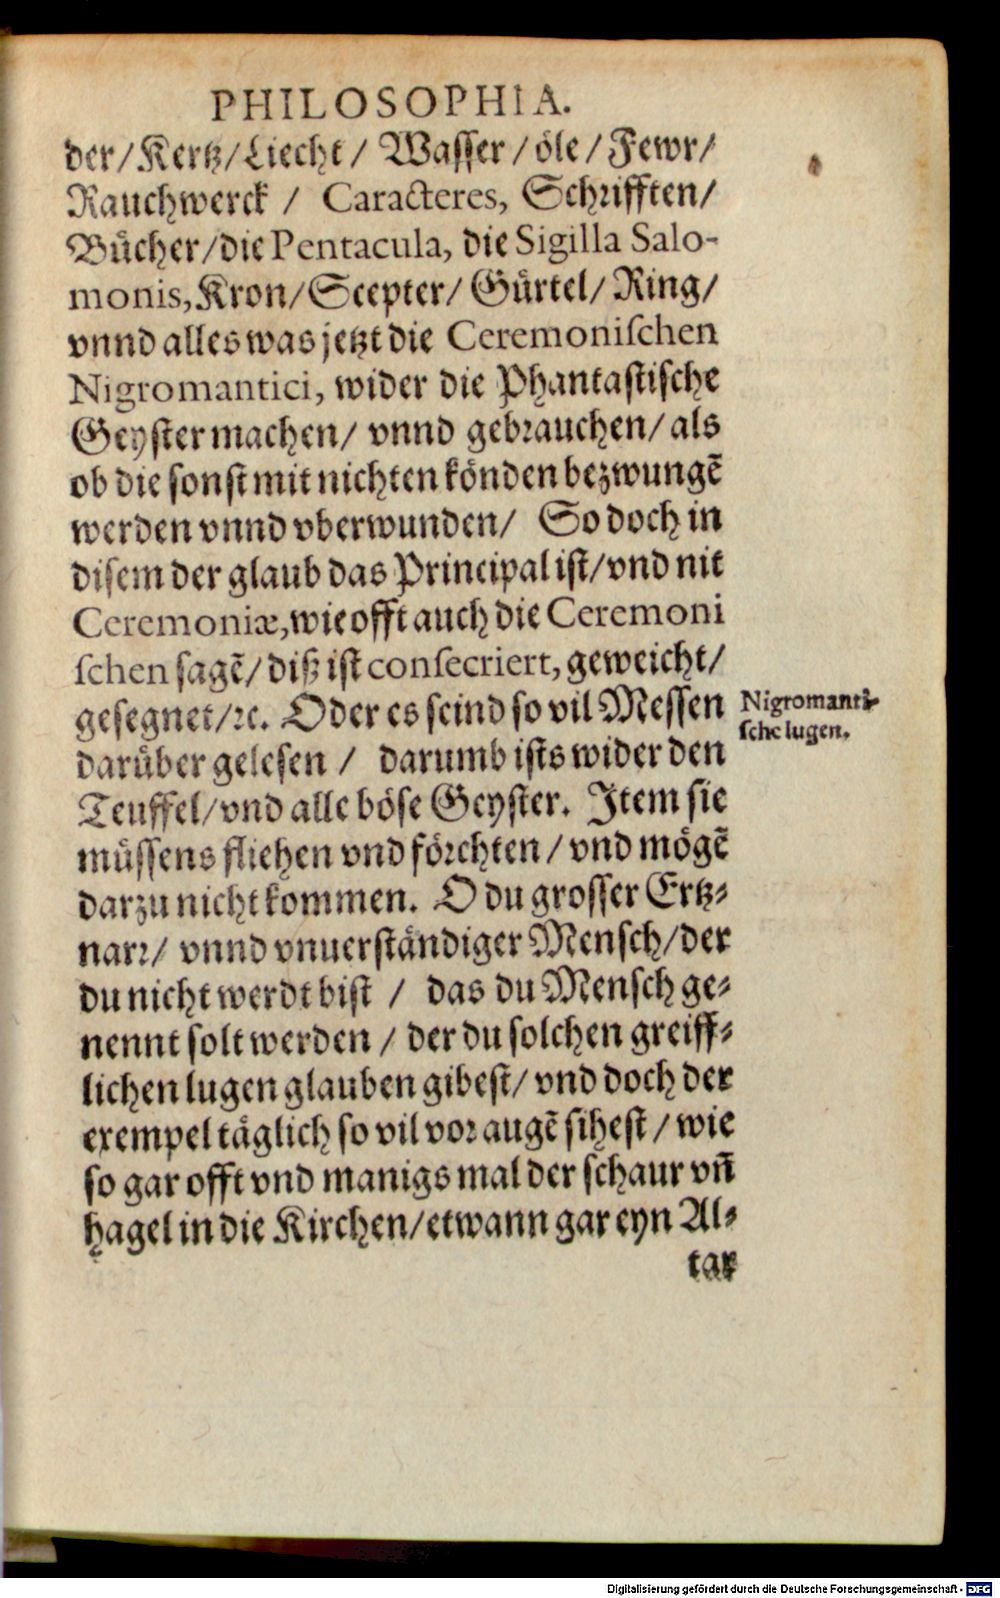 PHILOSOPHIA.
der/Kertz/Liecht/ Wasser/öle/Fewr/
Rauchwerck / Caracteres, Schrifften/
Bücher/die Pentacula, die Sigilla Salo-
monis, Kron/Scepter/ Gürtel/ Ring/
vnnd alles was jetzt die Ceremonischen
Nigromantici, wider die Phantastische
Geyster machen/ vnnd gebrauchen/ als
ob die sonst mit nichten könden bezwungẽ
werden vnnd vberwunden/ So doch in
disem der glaub das Principal ist/vnd nit
Ceremoniæ, wie offt auch die Ceremoni
schen sagẽ/ diß ist consecriert, geweicht/
gesegnet/ꝛc. Oder es seind so vil Messen
darüber gelesen / darumb ists wider den
Nigromanti-
sche lugen.
Teuffel/vnd alle böse Geyster. Item sie
müssens fliehen vnd förchten/ vnd mögẽ
darzu nicht kommen. O du grosser Ertz-
narr/ vnnd vnuerständiger Mensch/der
du nicht werdt bist / das du Mensch ge-
nennt solt werden / der du solchen greiff-
lichen lugen glauben gibest/ vnd doch der
exempel täglich so vil vor augẽ sihest/ wie
so gar offt vnd manigs mal der schaur vñ
hagel in die Kirchen/etwann gar eyn Al-
tar
Digitalisierung gefördert durch die Deutsche Forschungsgemeinschaft - DFG